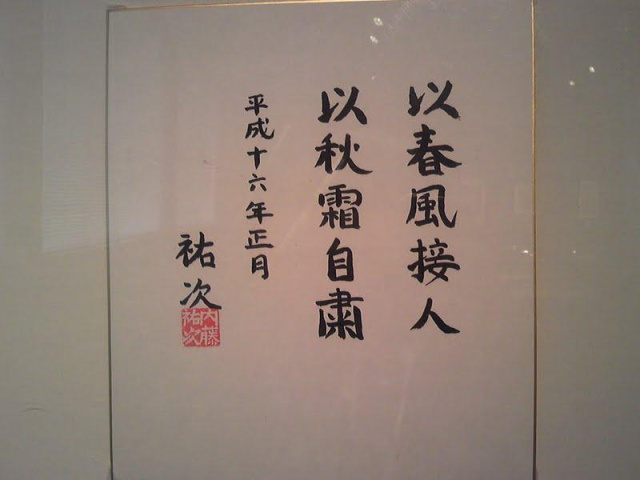 以春風接人
以秋霜自粛
平成十六年正月
祐次
内藤
祐次